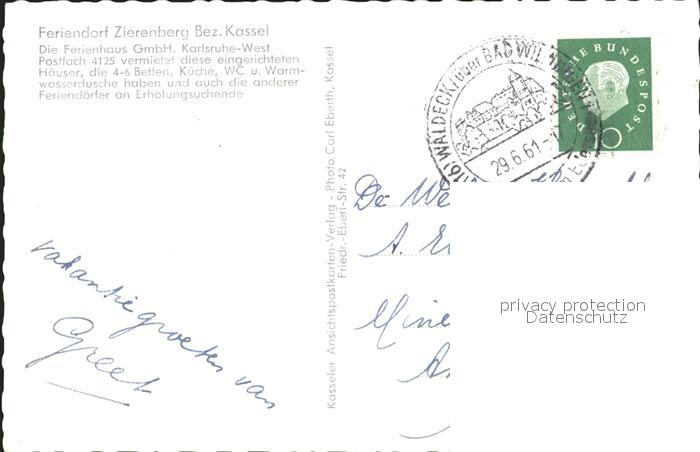 Feriendorf Zierenberg Bez. Kassel
Die Ferienhaus GmbH. Karlsruhe-West
Postfach 4125 vermietet diese eingerichteten
Häuser, die 4-6 Betten, Küche, WC u. Warm-
wasserdusche haben und auch die anderer
Feriendörfer an Erholungsuchende
vakantiegroeten van
Greet
Kasseler Ansichtspostkarten-Verlag - Photo Carl Eberth, Kassel
Friedr.-Ebert-Str. 42
(16) WALDECK über BAD WILDUNGEN
29.6.61
DEUTSCHE BUNDESPOST
10
De We
A. E
Mine
A
privacy protection
Datenschutz